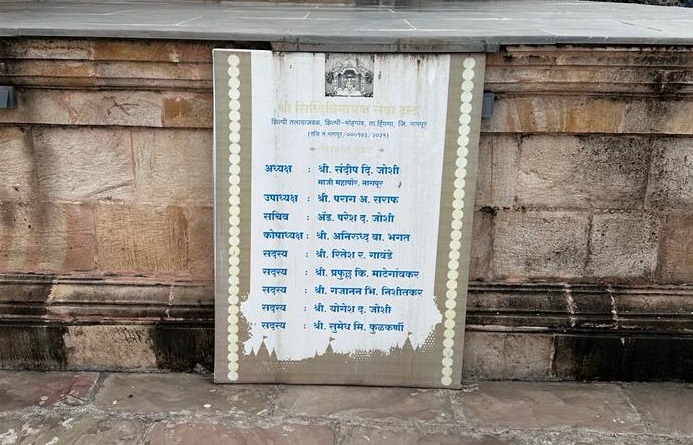 श्री सिद्धिविनायक सेवा ट्रस्ट
झिल्पी तलावाजवळ, झिल्पी-मोहगांव, ता.हिंगणा, जि. नागपूर
(रजि नं.नागपूर/०००१७३/२०२१)
विश्वस्त मंडळ
अध्यक्ष : श्री. संदीप दि. जोशी
माजी महापौर, नागपूर
उपाध्यक्ष : श्री. पराग अ. सराफ
सचिव : ॲड. परेश द. जोशी
कोषाध्यक्ष : श्री. अनिरुध्द वा. भगत
सदस्य : श्री. रितेश र. गावंडे
सदस्य : श्री. प्रफुल्ल कि. माटेगांवकर
सदस्य : श्री. गजानन भि. निशीतकर
सदस्य : श्री. योगेश द. जोशी
सदस्य : श्री. सुमेध मि. कुळकर्णी